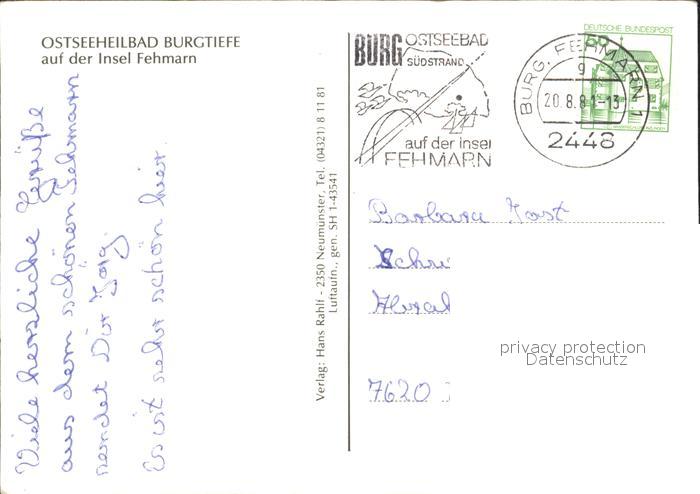 OSTSEEHEILBAD BURGTIEFE
auf der Insel Fehmarn
Viele herzliche Grüße
aus dem schönen Fehmarn
sendet Dir Jörg.
Es ist sehr schön hier.
Verlag: Hans Rahlf - 2350 Neumünster, Tel. (04321) 8 11 81
Luftaufn., gen. SH 1-43541
BURG OSTSEEBAD
SÜDSTRAND
auf der Insel
FEHMARN
BURG, FEHMARN 1
g
20.8.81-13
2448
DEUTSCHE BUNDESPOST
50
Barbara Jost
Schri
7620
privacy protection
Datenschutz